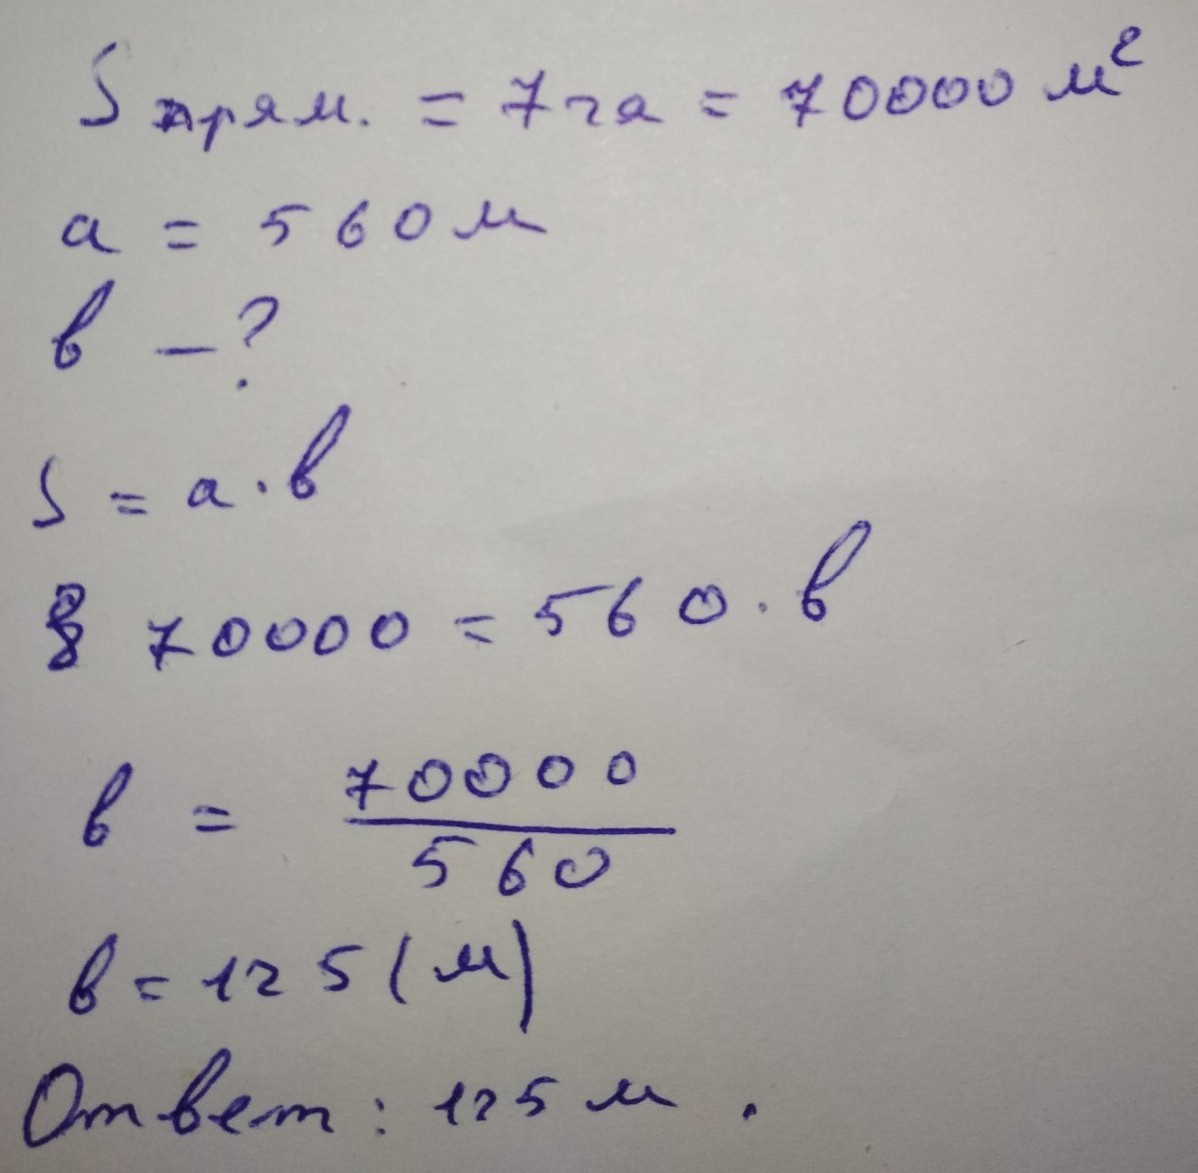 S прям. = 7 га = 70000 м²
a = 560 м
в – ?
S = a · в
70000 = 560 · в
в = 70000/560
в = 125 (м)
Ответ: 125 м.